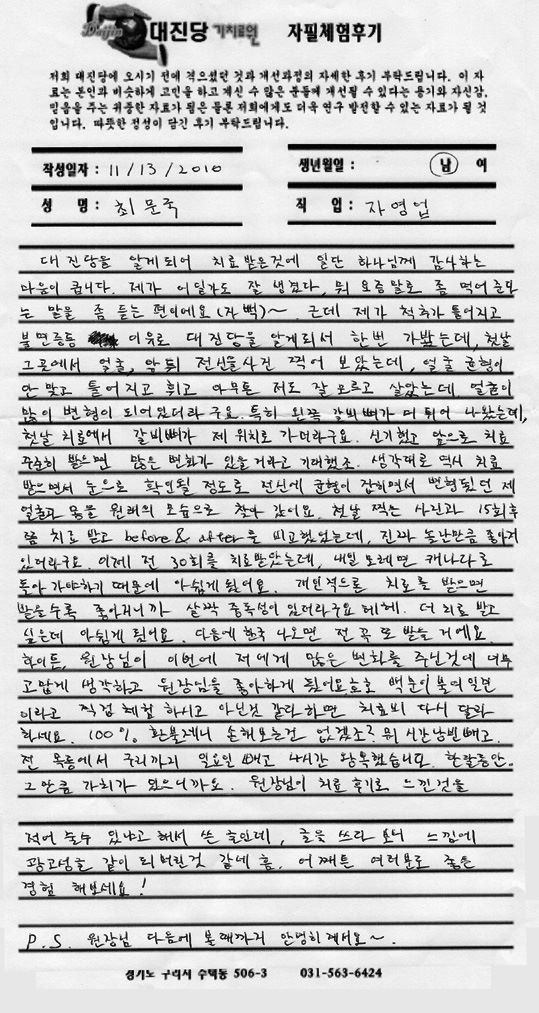 Daijin 대진당 기치료원 자필체험후기
저희 대진당에 오시기 전에 겪으셨던 것과 개선과정의 자세한 후기 부탁드립니다. 이 자
료는 본인과 비슷하게 고민을 하고 계신 수 많은 분들께 개선될 수 있다는 용기와 자신감,
믿음을 주는 귀중한 자료가 됨은 물론 저희에게도 더욱 연구 발전할 수 있는 자료가 될 것
입니다. 따뜻한 정성이 담긴 후기 부탁드립니다.
작성일자 : 11/13/2010
생년월일 : 남 여
성 명 : 최문죽
직 업 : 자영업
대진당을 알게되어 치료받은것에 일단 하나님께 감사하는
마음이 큽니다. 제가 어딜가도 잘 생겼다, 뭐 요즘말로 좀 먹어준다
는 말을 좀 듣는 편이예요 (자뻑)~ 근데 제가 척추가 틀어지고
불면증등 이유로 대진당을 알게되서 한번 가봤는데, 첫날
그곳에서 얼굴, 앞뒤 전신을사진 찍어 보았는데, 얼굴 균형이
안맞고 틀어지고 휘고 아무튼 저도 잘 모르고 살았는데 얼굴이
많이 변형이 되어있더라구요. 특히 왼쪽 갈비뼈가 더 튀어 나왔는데,
첫날 치료에서 갈비뼈가 제 위치로 가더라구요. 신기했고 앞으로 치료
꾸준히 받으면 많은 변화가 있을거라고 기대했죠. 생각대로 역시 치료
받으면서 눈으로 확인될 정도로 전신에 균형이 잡히면서 변형됬던 제
얼굴과 몸을 원래의 모습으로 찾아 갔어요. 첫날 찍는 사진과 15회후
쯤 치료 받고 before & after을 비교했었는데, 진짜 놀란만큼 좋아져
있더라구요. 이제 전 30회를 치료받았는데, 내일 모레면 캐나다로
돌아가야하기 때문에 아쉽게 됬어요. 개인적으론 치료를 받으면
받을수록 좋아지니까 살짝 중독성이 있더라구요 헤헤. 더 치료 받고
싶은데 아쉽게 됬어요. 다음에 한국 나오면 전 꼭 또 받을 거예요.
하이튼, 원장님이 이번에 저에게 많은 변화를 주신것에 너무
고맙게 생각하고 원장님을 좋아하게 됬어요호호 백문이불여일견
이라고 직접 체험 하시고 아닌것 같다하면 치료비 다시 달라
하세요. 100% 환불제니 손해보는건 없겠죠? 뭐 시간낭빈빼고.
전 목동에서 구리까지 일요일 빼고 4시간 왕복했습니다. 한달동안.
그만큼 가치가 있으니까요. 원장님이 치료 후기로 느낀것을
적어 줄수 있냐고 해서 쓴 글인데, 글을 쓰다 보니 느낌에
광고성글 같이 되버린것 같네 흠. 어쨰튼 여러분도 좋은
경험 해보세요!
P.S. 원장님 다음에 볼때까지 안녕히계세요~.
경기도 구리시 수택동 506-3 031-563-6424